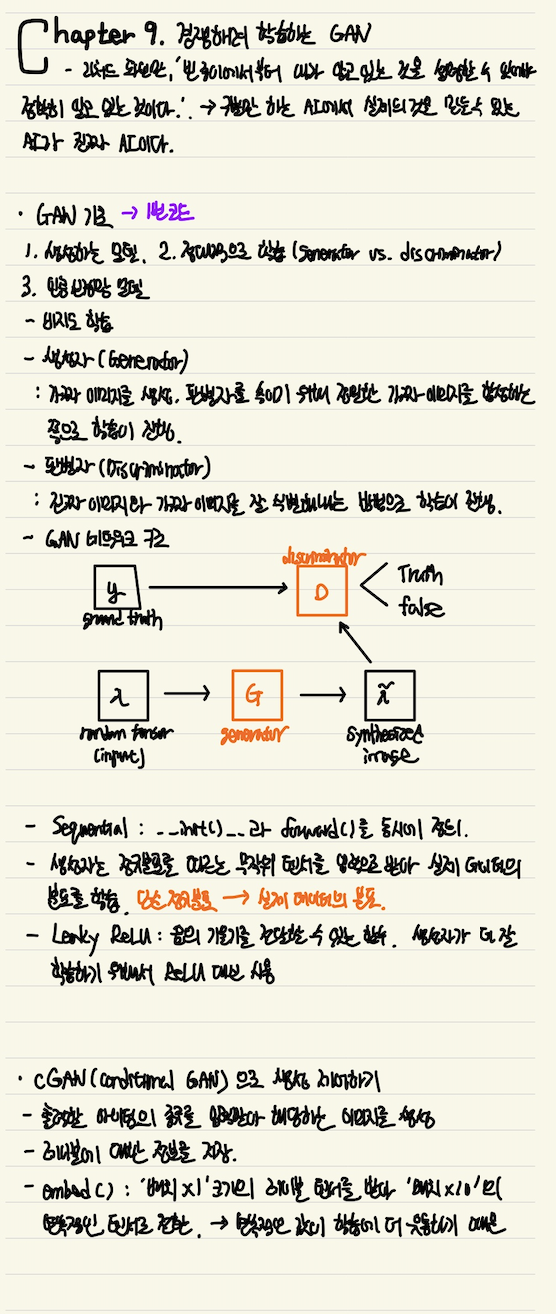 Chapter 9. 경쟁하며 학습하는 GAN
- 리처드 파인만, '빈 종이에서부터 내가 알고 있는 것을 설명할 수 있어야
정확히 알고 있는 것이다.' → 구별만 하는 AI에서 실제의 것을 만들 수 있는
AI가 진짜 AI이다.
· GAN 기초 → 1번 코드
1. 생성하는 모델. 2. 적대적으로 학습 (Generator vs. discriminator)
3. 인공신경망 모델
- 비지도 학습
- 생성자 (Generator)
: 가짜 이미지를 생성. 판별자를 속이기 위해 정밀한 가짜 이미지를 합성하는
쪽으로 학습이 진행.
- 판별자 (Discriminator)
: 진짜 이미지와 가짜 이미지를 잘 식별해내는 방법으로 학습이 진행.
- GAN 네트워크 구조
discriminator
y → D Truth
ground truth false
x → G → x̃
random tensor generator synthesized
(input) image
- Sequential : __init()__과 forward()를 동시에 정의.
- 생성자는 정규분포를 따르는 무작위 텐서를 입력으로 받아 실제 데이터의
분포를 학습. 단순 정규분포 → 실제 데이터의 분포.
- Leaky ReLU : 음의 기울기를 전달할 수 있는 함수. 생성자가 더 잘
학습하기 위해서 ReLU 대신 사용
· cGAN(conditional GAN) 으로 생성 제어하기
- 출력할 아이템의 종류를 입력받아 해당하는 이미지를 생성
- 레이블에 대한 정보를 저장.
- embed() : '배치 x 1' 크기의 레이블 텐서를 받아 '배치 x 10'의
연속적인 텐서로 전환. → 연속적인 값이 학습에 더 유용하기 때문